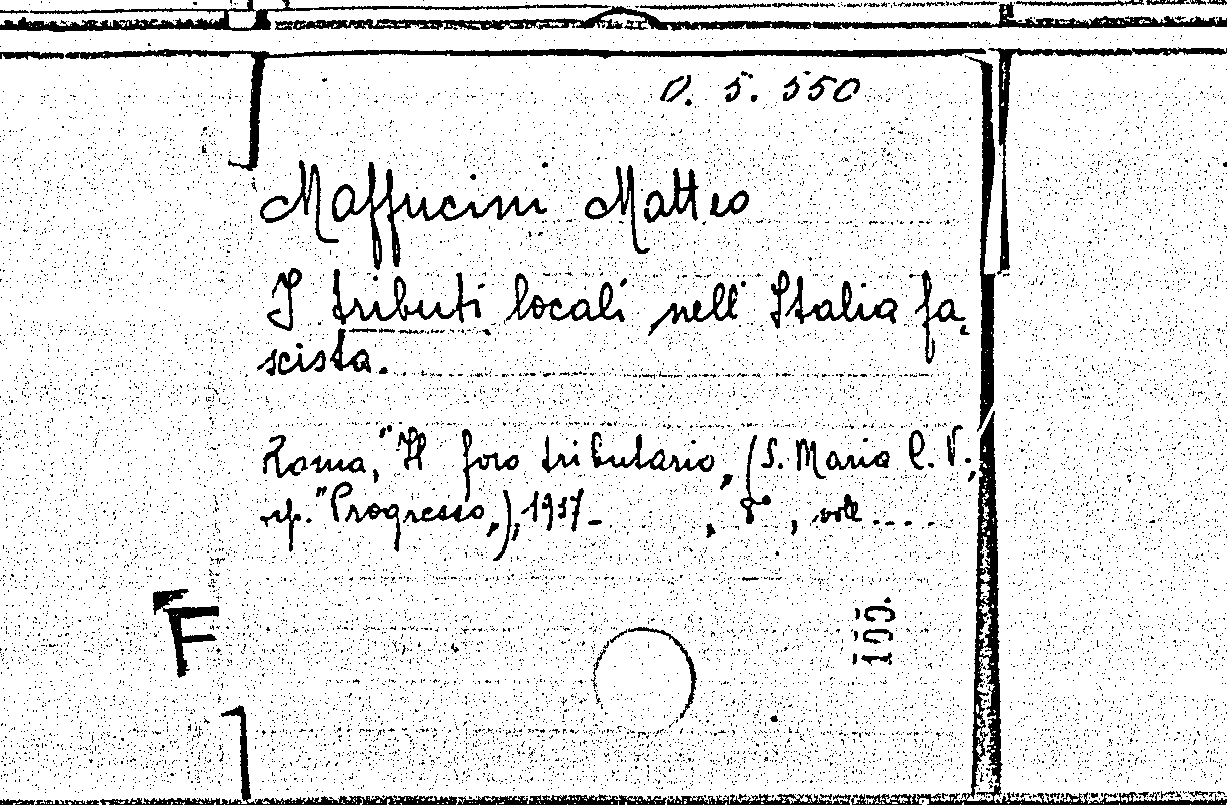 O. 5. 550
Maffucini Matteo
I tributi locali nell'Italia fa-
scista.
Roma, "Il foro tributario„ (S. Maria C. V.,
tip. "Progresso„), 1937- , 8°, voll....
F
100.